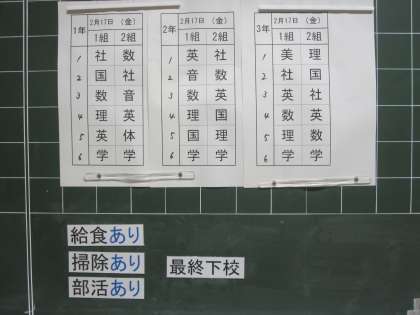 1年 2月17日 (金)
1組 2組
1 社 数
2 国 社
3 数 音
4 理 英
5 英 体
6 学 学
2年 2月17日 (金)
1組 2組
1 英 社
2 音 数
3 数 英
4 理 国
5 国 理
6 学 学
3年 2月17日 (金)
1組 2組
1 美 理
2 社 国
3 英 社
4 数 英
5 理 数
6 学 学
給食あり
掃除あり
部活あり
最終下校